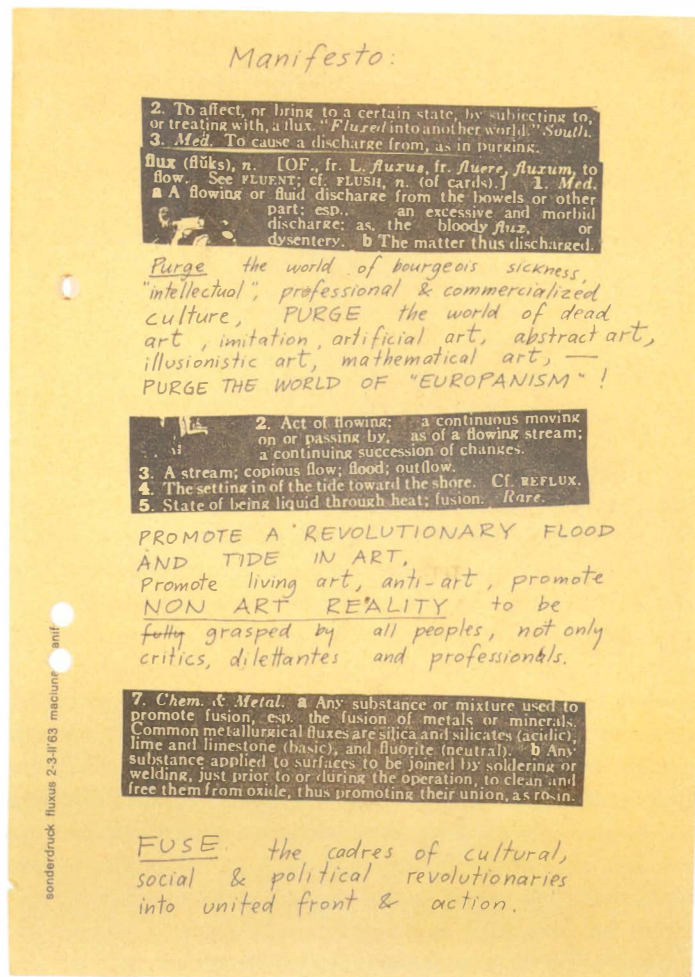 Manifesto:
2. To affect, or bring to a certain state, by subjecting to,
or treating with, a flux. "Fluxed into another world." South.
3. Med. To cause a discharge from, as in purging.
flux (flŭks), n. [OF., fr. L. fluxus, fr. fluere, fluxum, to
flow. See FLUENT; cf. FLUSH, n. (of cards).] 1. Med.
a A flowing or fluid discharge from the bowels or other
part; esp., an excessive and morbid
discharge; as, the bloody flux, or
dysentery. b The matter thus discharged.
Purge the world of bourgeois sickness,
"intellectual", professional & commercialized
culture, PURGE the world of dead
art, imitation, artificial art, abstract art,
illusionistic art, mathematical art, —
PURGE THE WORLD OF "EUROPANISM"!
2. Act of flowing; a continuous moving
on or passing by, as of a flowing stream;
a continuing succession of changes.
3. A stream; copious flow; flood; outflow.
4. The setting in of the tide toward the shore. Cf. REFLUX.
5. State of being liquid through heat; fusion. Rare.
PROMOTE A REVOLUTIONARY FLOOD
AND TIDE IN ART,
Promote living art, anti-art, promote
NON ART REALITY to be
fully grasped by all peoples, not only
critics, dilettantes and professionals.
7. Chem. & Metal. a Any substance or mixture used to
promote fusion, esp. the fusion of metals or minerals.
Common metallurgical fluxes are silica and silicates (acidic),
lime and limestone (basic), and fluorite (neutral). b Any
substance applied to surfaces to be joined by soldering or
welding, just prior to or during the operation, to clean and
free them from oxide, thus promoting their union, as rosin.
FUSE the cadres of cultural,
social & political revolutionaries
into united front & action.
sonderdruck fluxus 2-3-II'63 maciuna anif